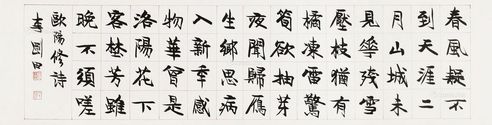 春風疑不
到天涯二
月山城未
見華殘雪
壓枝猶有
橘凍雷驚
筍欲抽芽
夜聞歸雁
生鄉思病
入新秊感
物華曾是
洛陽花下
客埜芳雖
晚不須嗟
歐陽修詩
李剛田